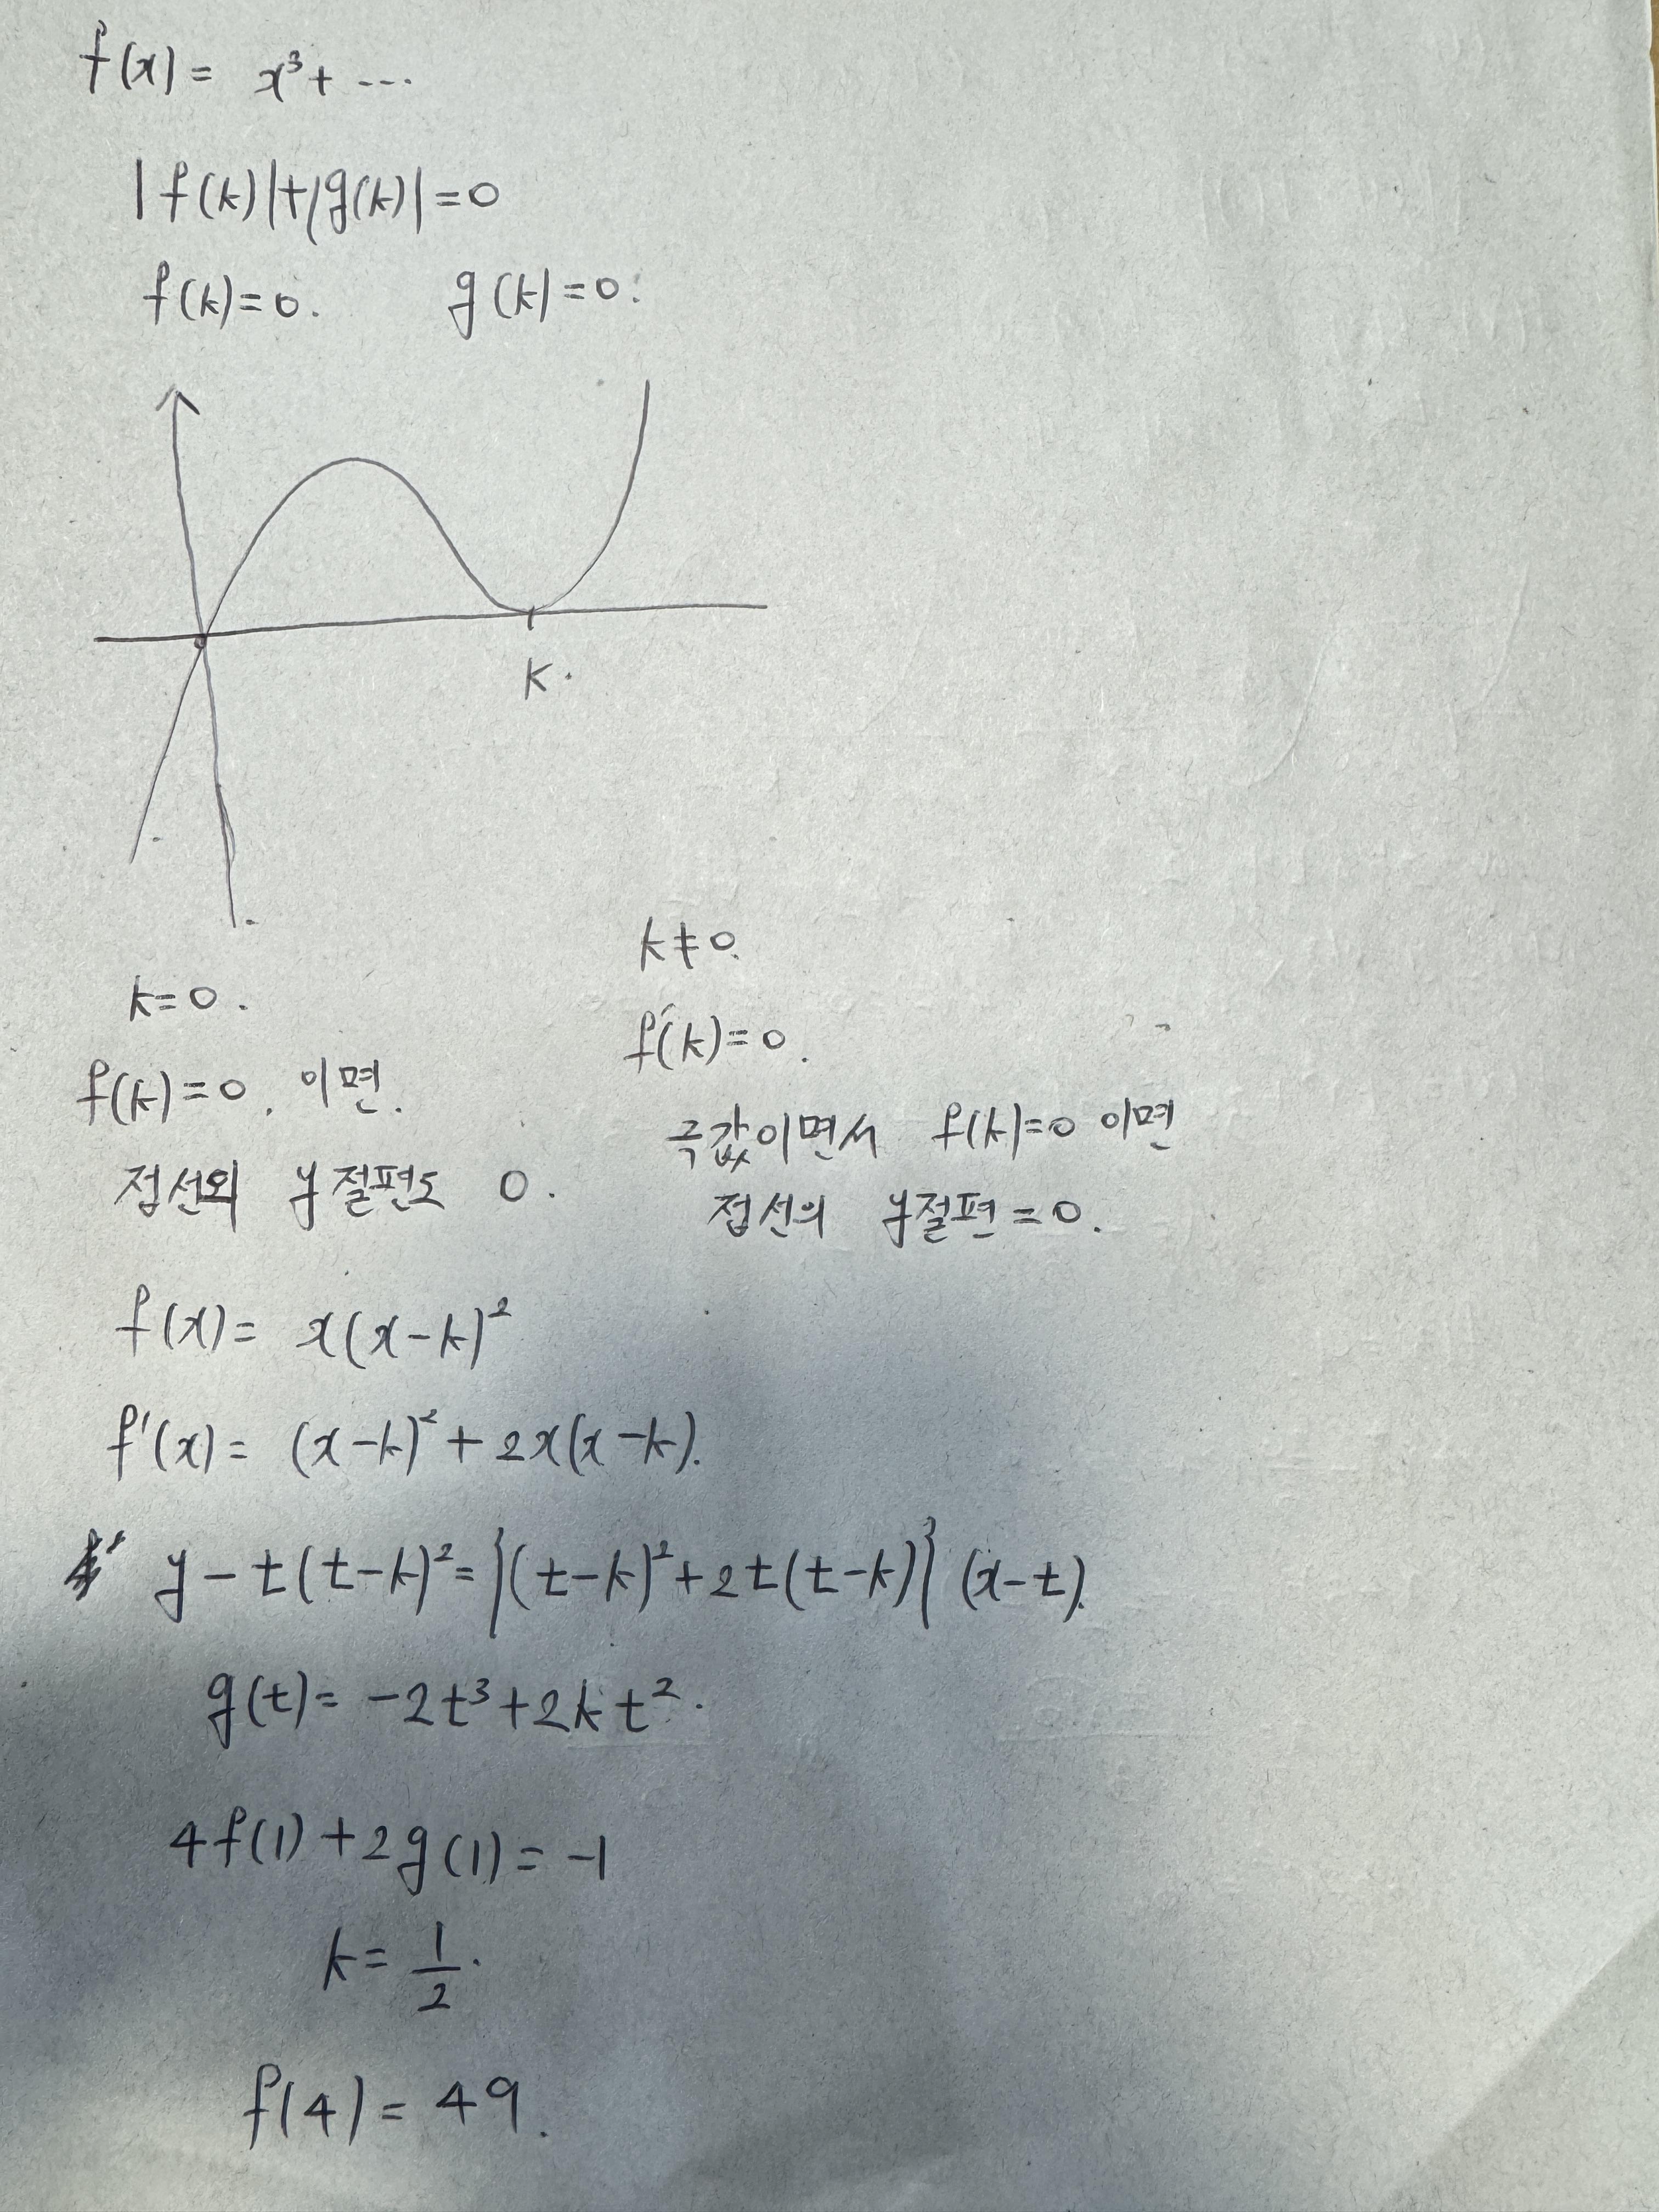 f(x) = x³ + ...
|f(k)|+|g(k)| = 0
f(k) = 0. g(k) = 0.
K.
k = 0. k ≠ 0.
f(k) = 0. 이면. f'(k) = 0.
접선의 y절편도 0. 극값이면서 f(k)=0 이면
접선의 y절편 = 0.
f(x) = x(x-k)²
f'(x) = (x-k)² + 2x(x-k).
y - t(t-k)² = {(t-k)² + 2t(t-k)} (x-t).
g(t) = -2t³ + 2kt².
4f(1) + 2g(1) = -1
k = 1/2.
f(4) = 49.